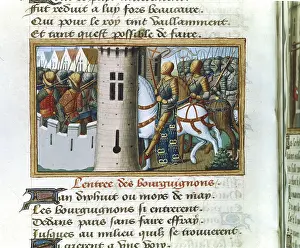 fut reduit a luy fors beaucaire
Qui pour le roy tint vaillamment
Et tant quest possible de faire.
Lentree des bourguignons.
Lan dixhuit ou moys de may.
Les bourguignons si entrerent
Dedans paris sans faire effray
Jusques au milieu quilz se trouverent
a une voix